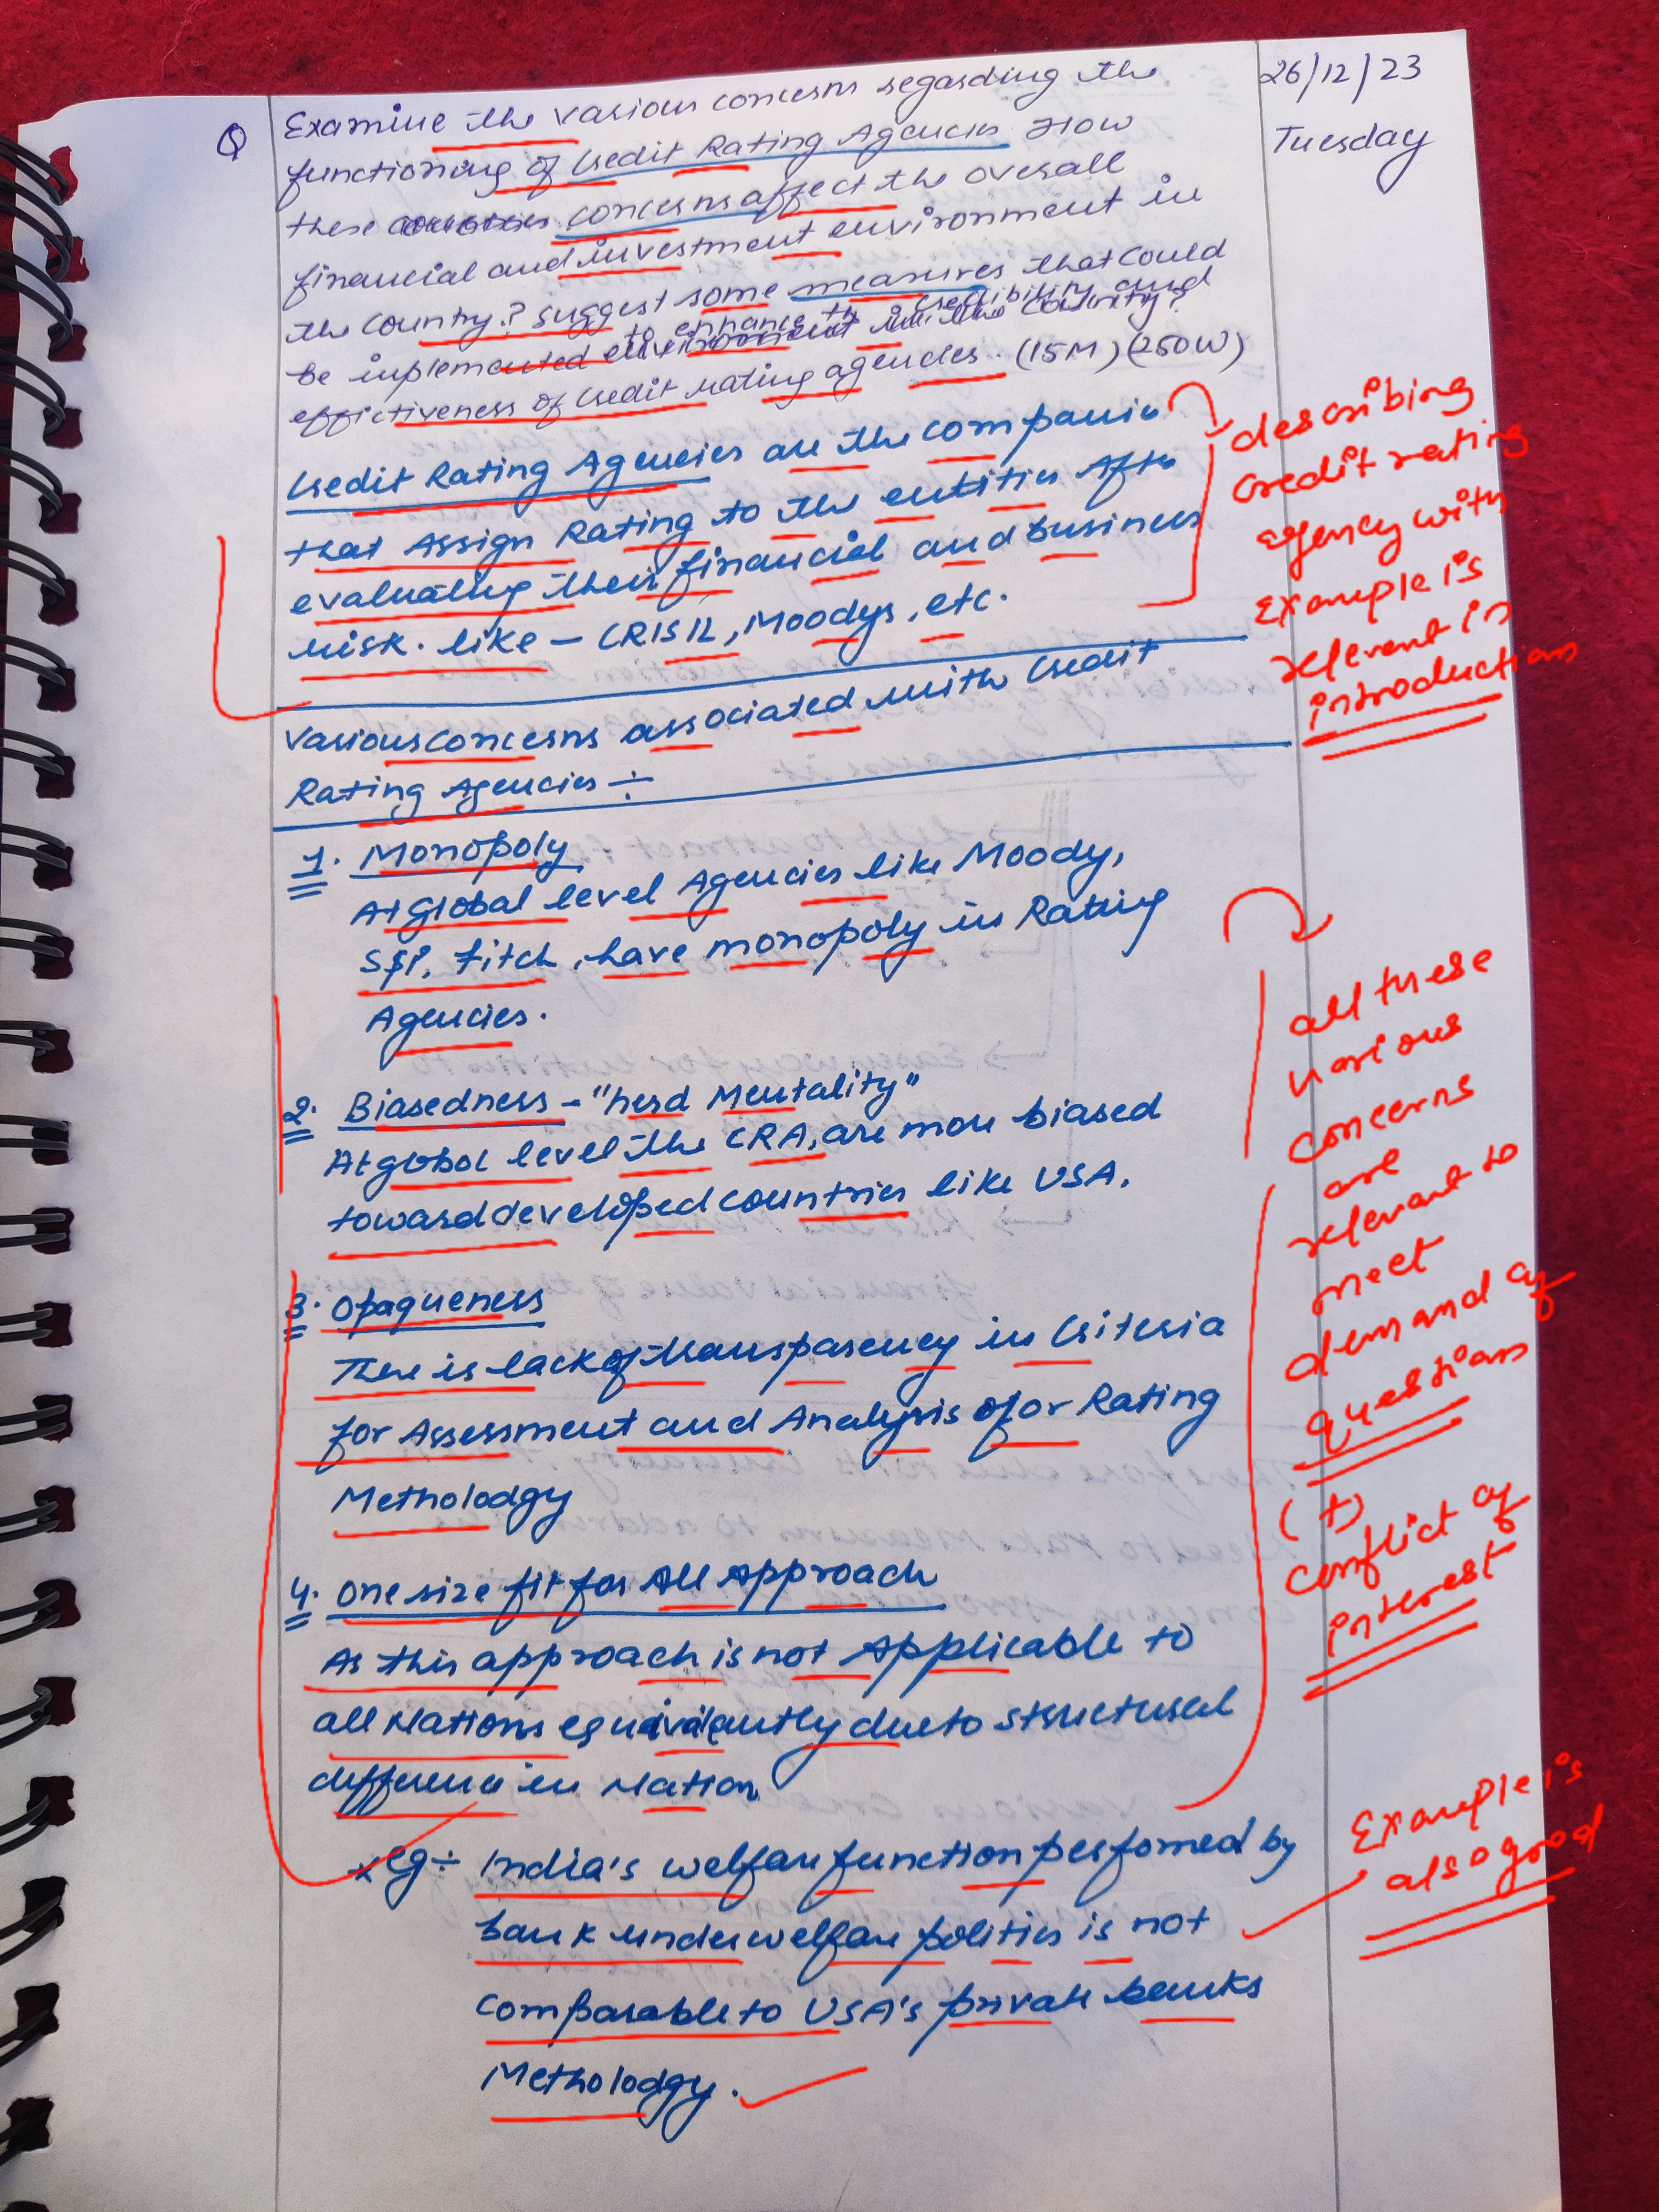 26/12/23
Tuesday
Q Examine the various concerns regarding the
functioning of Credit Rating Agencies How
these concerns affect the overall
financial and investment environment in
the Country? Suggest some measures that could
be implemented to enhance the credibility and
effictiveness of Credit rating agencies. (15M) (250W)
Credit Rating Agencies are the companies
that Assign Rating to the entities After
evaluating their financial and business
risk. like - CRISIL, Moodys, etc.
describing
credit rating
agency with
Example is
relevent in
introduction
Various concerns associated with Credit
Rating Agencies ÷
1. Monopoly
At Global level Agencies like Moody,
S&P, Fitch, have monopoly in Rating
Agencies.
2. Biasedness - "herd Mentality"
At global level the CRA, are more biased
toward developed countries like USA.
3. Opaqueness
There is lack of transparency in Criteria
for Assessment and Analysis of or Rating
Metholodgy
4. One size fit for All Approach
As this approach is not Applicable to
all Nations equivalently due to structural
difference in Nation
eg ÷ India's welfare function perfomed by
bank under welfare politics is not
comparable to USA's private banks
Metholodgy.
all these
various
concerns
are
relevant to
meet
demand of
questions
(+)
conflict of
interest
Example is
also good